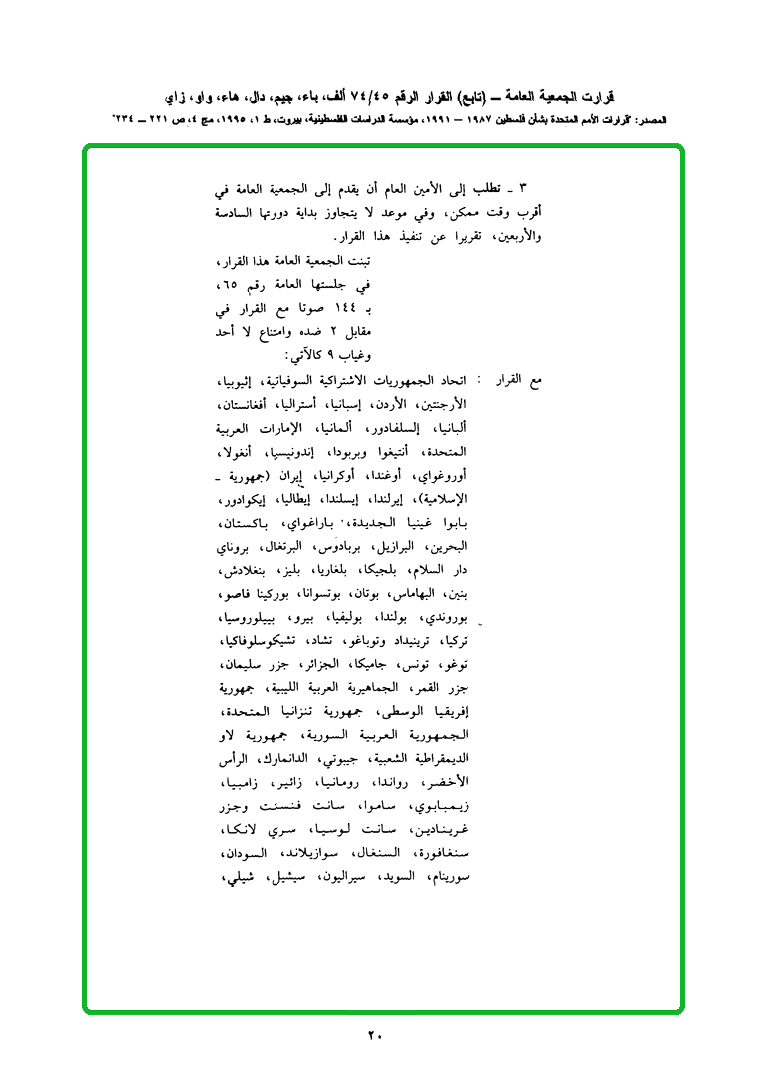 قرارت الجمعية العامة – (تابع) القرار الرقم ٧٤/٤٥ ألف، باء، جيم، دال، هاء، واو، زاي
المصدر: "قرارات الأمم المتحدة بشأن فلسطين ١٩٨٧ – ١٩٩١، مؤسسة الدراسات الفلسطينية، بيروت، ط ١، ١٩٩٥، مج ٤، ص ٢٢١ – ٢٣٤"
٣ ـ تطلب إلى الأمين العام أن يقدم إلى الجمعية العامة في
أقرب وقت ممكن، وفي موعد لا يتجاوز بداية دورتها السادسة
والأربعين، تقريرا عن تنفيذ هذا القرار.
تبنت الجمعية العامة هذا القرار،
في جلستها العامة رقم ٦٥،
بـ ١٤٤ صوتا مع القرار في
مقابل ٢ ضده وامتناع لا أحد
وغياب ٩ كالآتي:
مع القرار : اتحاد الجمهوريات الاشتراكية السوفياتية، إثيوبيا،
الأرجنتين، الأردن، إسبانيا، أستراليا، أفغانستان،
ألبانيا، إلسلفادور، ألمانيا، الإمارات العربية
المتحدة، أنتيغوا وبربودا، إندونيسيا، أنغولا،
أوروغواي، أوغندا، أوكرانيا، إيران (جمهورية ـ
الإسلامية)، إيرلندا، إيسلندا، إيطاليا، إيكوادور،
بابوا غينيا الجديدة، باراغواي، باكستان،
البحرين، البرازيل، بربادوس، البرتغال، بروناي
دار السلام، بلجيكا، بلغاريا، بليز، بنغلادش،
بنين، البهاماس، بوتان، بوتسوانا، بوركينا فاصو،
بوروندي، بولندا، بوليفيا، بيرو، بييلوروسيا،
تركيا، ترينيداد وتوباغو، تشاد، تشيكوسلوفاكيا،
توغو، تونس، جاميكا، الجزائر، جزر سليمان،
جزر القمر، الجماهيرية العربية الليبية، جمهورية
إفريقيا الوسطى، جمهورية تنزانيا المتحدة،
الجمهورية العربية السورية، جمهورية لاو
الديمقراطية الشعبية، جيبوتي، الدانمارك، الرأس
الأخضر، رواندا، رومانيا، زائير، زامبيا،
زيمبابوي، ساموا، سانت فنسنت وجزر
غرينادين، سانت لوسيا، سري لانكا،
سنغافورة، السنغال، سوازيلاند، السودان،
سورينام، السويد، سيراليون، سيشيل، شيلي،
٢٠